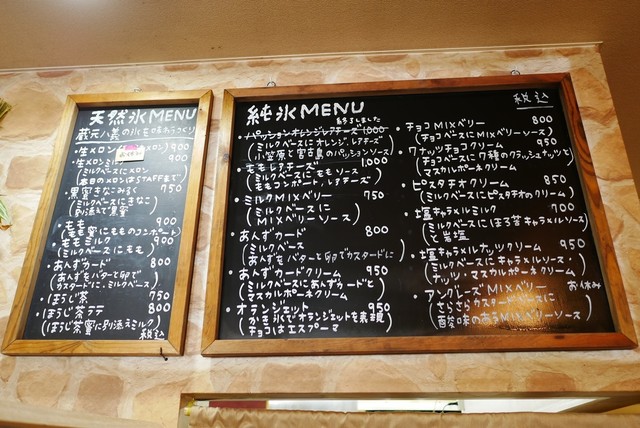 天然氷MENU
蔵元八義の氷を
生メロン 900
生メロンミルク 900
(ミルクベースにメロン
本日のメロンはSTAFFまで)
黒蜜きなこみるく 750
(ミルクベースにきなこ
別添えで黒蜜)
もも 900
(もも蜜にもものコンポート)
ももミルク 900
(ミルクベースにもも)
あんずカード 800
(あんずをバターと卵で
カスタードに。ミルクベース)
ほうじ茶 750
ほうじ茶ラテ 800
(ほうじ茶蜜に別添えミルク)
税込
純氷MENU
終了しました
パッションオレンジレアチーズ 1,000
(ミルクベースにオレンジ、レアチーズ
小笠原と宮古島のパッションソース)
ももレアチーズ 1,000
(ミルクベースにももソース
ももコンポート、レアチーズ)
ミルクMIXベリー 750
(ミルクベースに
MIXベリーソース)
あんずカード 800
(ミルクベース
あんずをバターと卵でカスタードに)
あんずカードクリーム 950
(ミルクベースにあんずカードと
マスカルポーネクリーム)
オランジェット 950
(かき氷でオランジェットを表現
チョコはエスプーマ)
税込
チョコMIXベリー 800
(チョコベースにMIXベリーソース)
ワナッツチョコクリーム 950
(チョコベースに7種のクラッシュナッツと
マスカルポーネクリーム)
ピスタチオクリーム 850
(ミルクベースにピスタチオのクリーム)
塩キャラメルミルク 700
(ミルクベースにほろ苦キャラメルソース
と岩塩)
塩キャラメルナッツクリーム 950
(ミルクベースにキャラメルソース・
ナッツ・マスカルポーネクリーム)
アングレーズMIXベリー お休み
(さらさらカスタードベースに
酸味のあるMIXベリーソース)